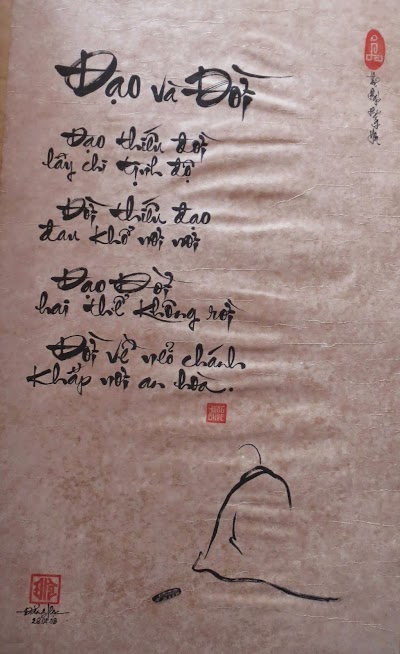 Đạo và Đời
Đạo thiếu đời
lấy chi tịnh độ
Đời thiếu đạo
đau khổ vời vời
Đạo Đời
hai thể không rời
Đời về nẻo chánh
khắp nơi an hòa.